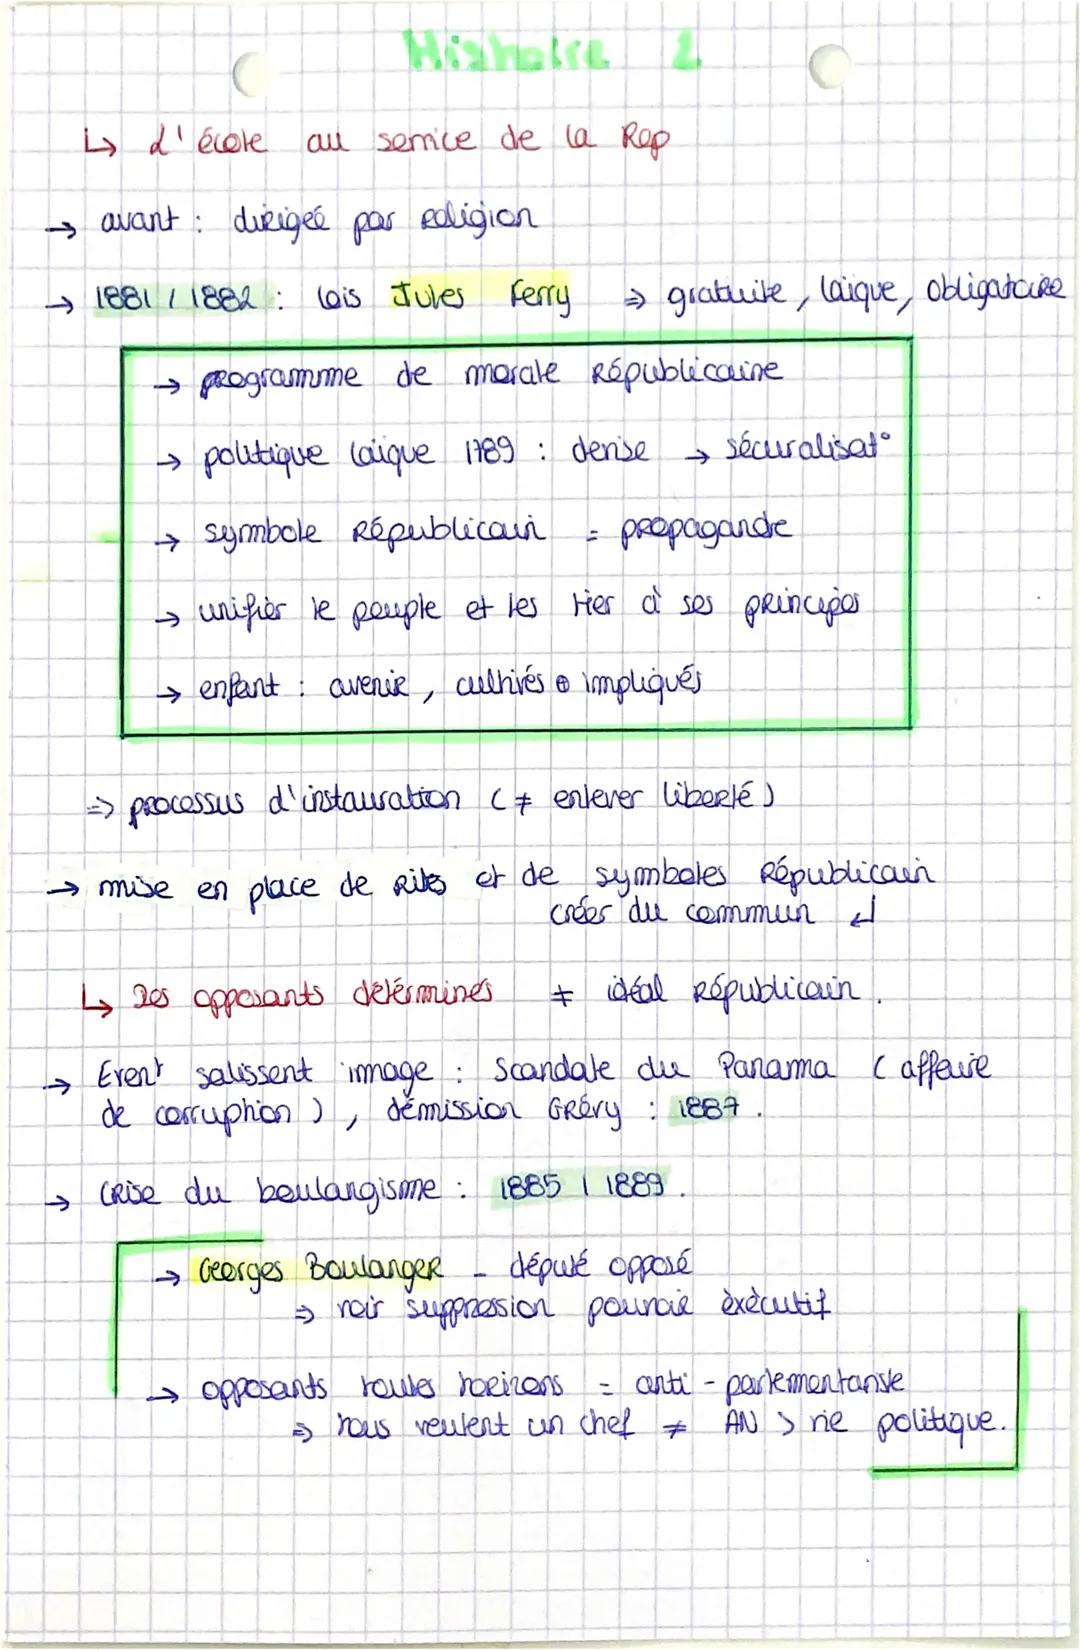 Histoire 2
↳ L'école au service de la Rep
→ avant : dirigée par religion
→ 1881 / 1882 : lois Jules Ferry ⇒ gratuite, laïque, obligatoire
→ programme de morale Républicaine
→ politique laïque 1789 : dense → sécuralisat°
→ symbole Républicain = propagande
→ unifier le peuple et les lier à ses principes
→ enfant : avenir, cultivés ⊕ impliqués
⇒ processus d'instauration (≠ enlever liberté)
→ mise en place de rites et de symboles Républicain
créer du commun ↲
↳ Des opposants déterminés ≠ idéal Républicain.
→ Even^t salissent image : Scandale du Panama (affaire
de corruption), démission Grévy : 1887.
→ Crise du boulangisme : 1885 / 1889.
→ Georges Boulanger - député opposé
⇒ voir suppression pouvoir éxécutif
→ opposants toutes horizons = anti-parlementariste
⇒ tous veulent un chef ≠ AN > vie politique.